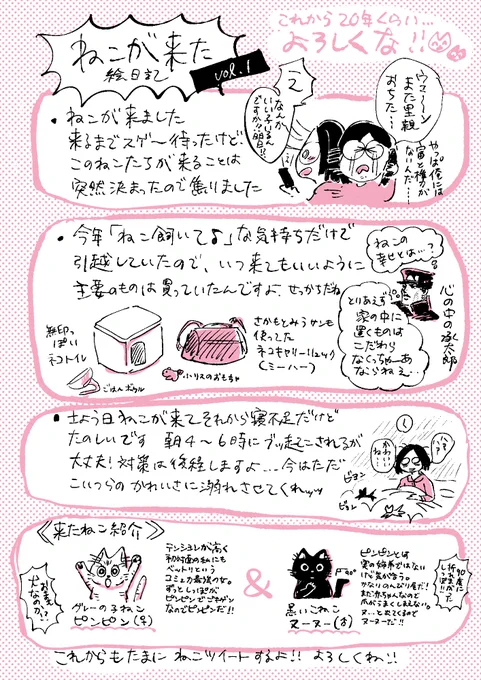 ねこが来た
絵日記
vol.1
これから20年くらい…
よろしくな!!
・ねこが来ました
来るまでスゲ〜待ったけど
このねこたちが来ることは
突然決まったので焦りました
なんか
いい子いるん
ですか?明日!?
ウァーン
また里親
おちた…
やっぱ俺には
・今年「ねこ飼いて♪」な気持ちだけで
引越していたので、いつ来てもいいように
主要のものは買っていたんですよ、せっかちだね
ねこの
幸せとは…?
とりあえず
家の中に
置くものは
こだわら
なくっちゃーあ
ならねえ…
心の中の承太郎
無印っ
ぽい
ネコトイレ
ごはんボウル
さかもとみうサンも
使ってた
ネコキャリーリュック
(ミーハー)
小リスのおもちゃ
・きょう日ねこが来てそれから寝不足だけど
たのしいです 朝4〜6時にブッ起こされるが
大丈夫!対策は後続しますよ…今はただ
こいつらの かわいさに溺れさせてくれッッ
かわいい
ね…
ピョン
ピョン
《来たねこ紹介》
おまえ
犬なのか!?
グレーの子ねこ
ピンピン(♀)
テンションが高く
初対面の私にも
ベットリという
コミュ力最強クラス。
ずっとしっぽが
ピンピンでゴキゲン
なのでピンピンだ!!
&
黒いこねこ
ヌーヌー(♂)
ピンピンとは
実の姉弟ではない
けど気が合う。
かなりのんびり屋だ!
まだ赤ちゃんなので
爪がうまくしまえない。
ヌ…と出てくるので
ヌーヌーだ!!
これからもたまに ねこツイートするよ!! よろしくねッ!!